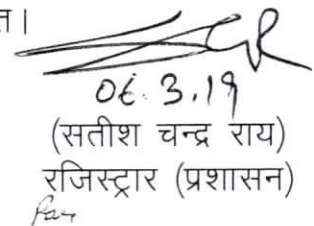 त।
06.3.19
(सतीश चन्द्र राय)
रजिस्ट्रार (प्रशासन)